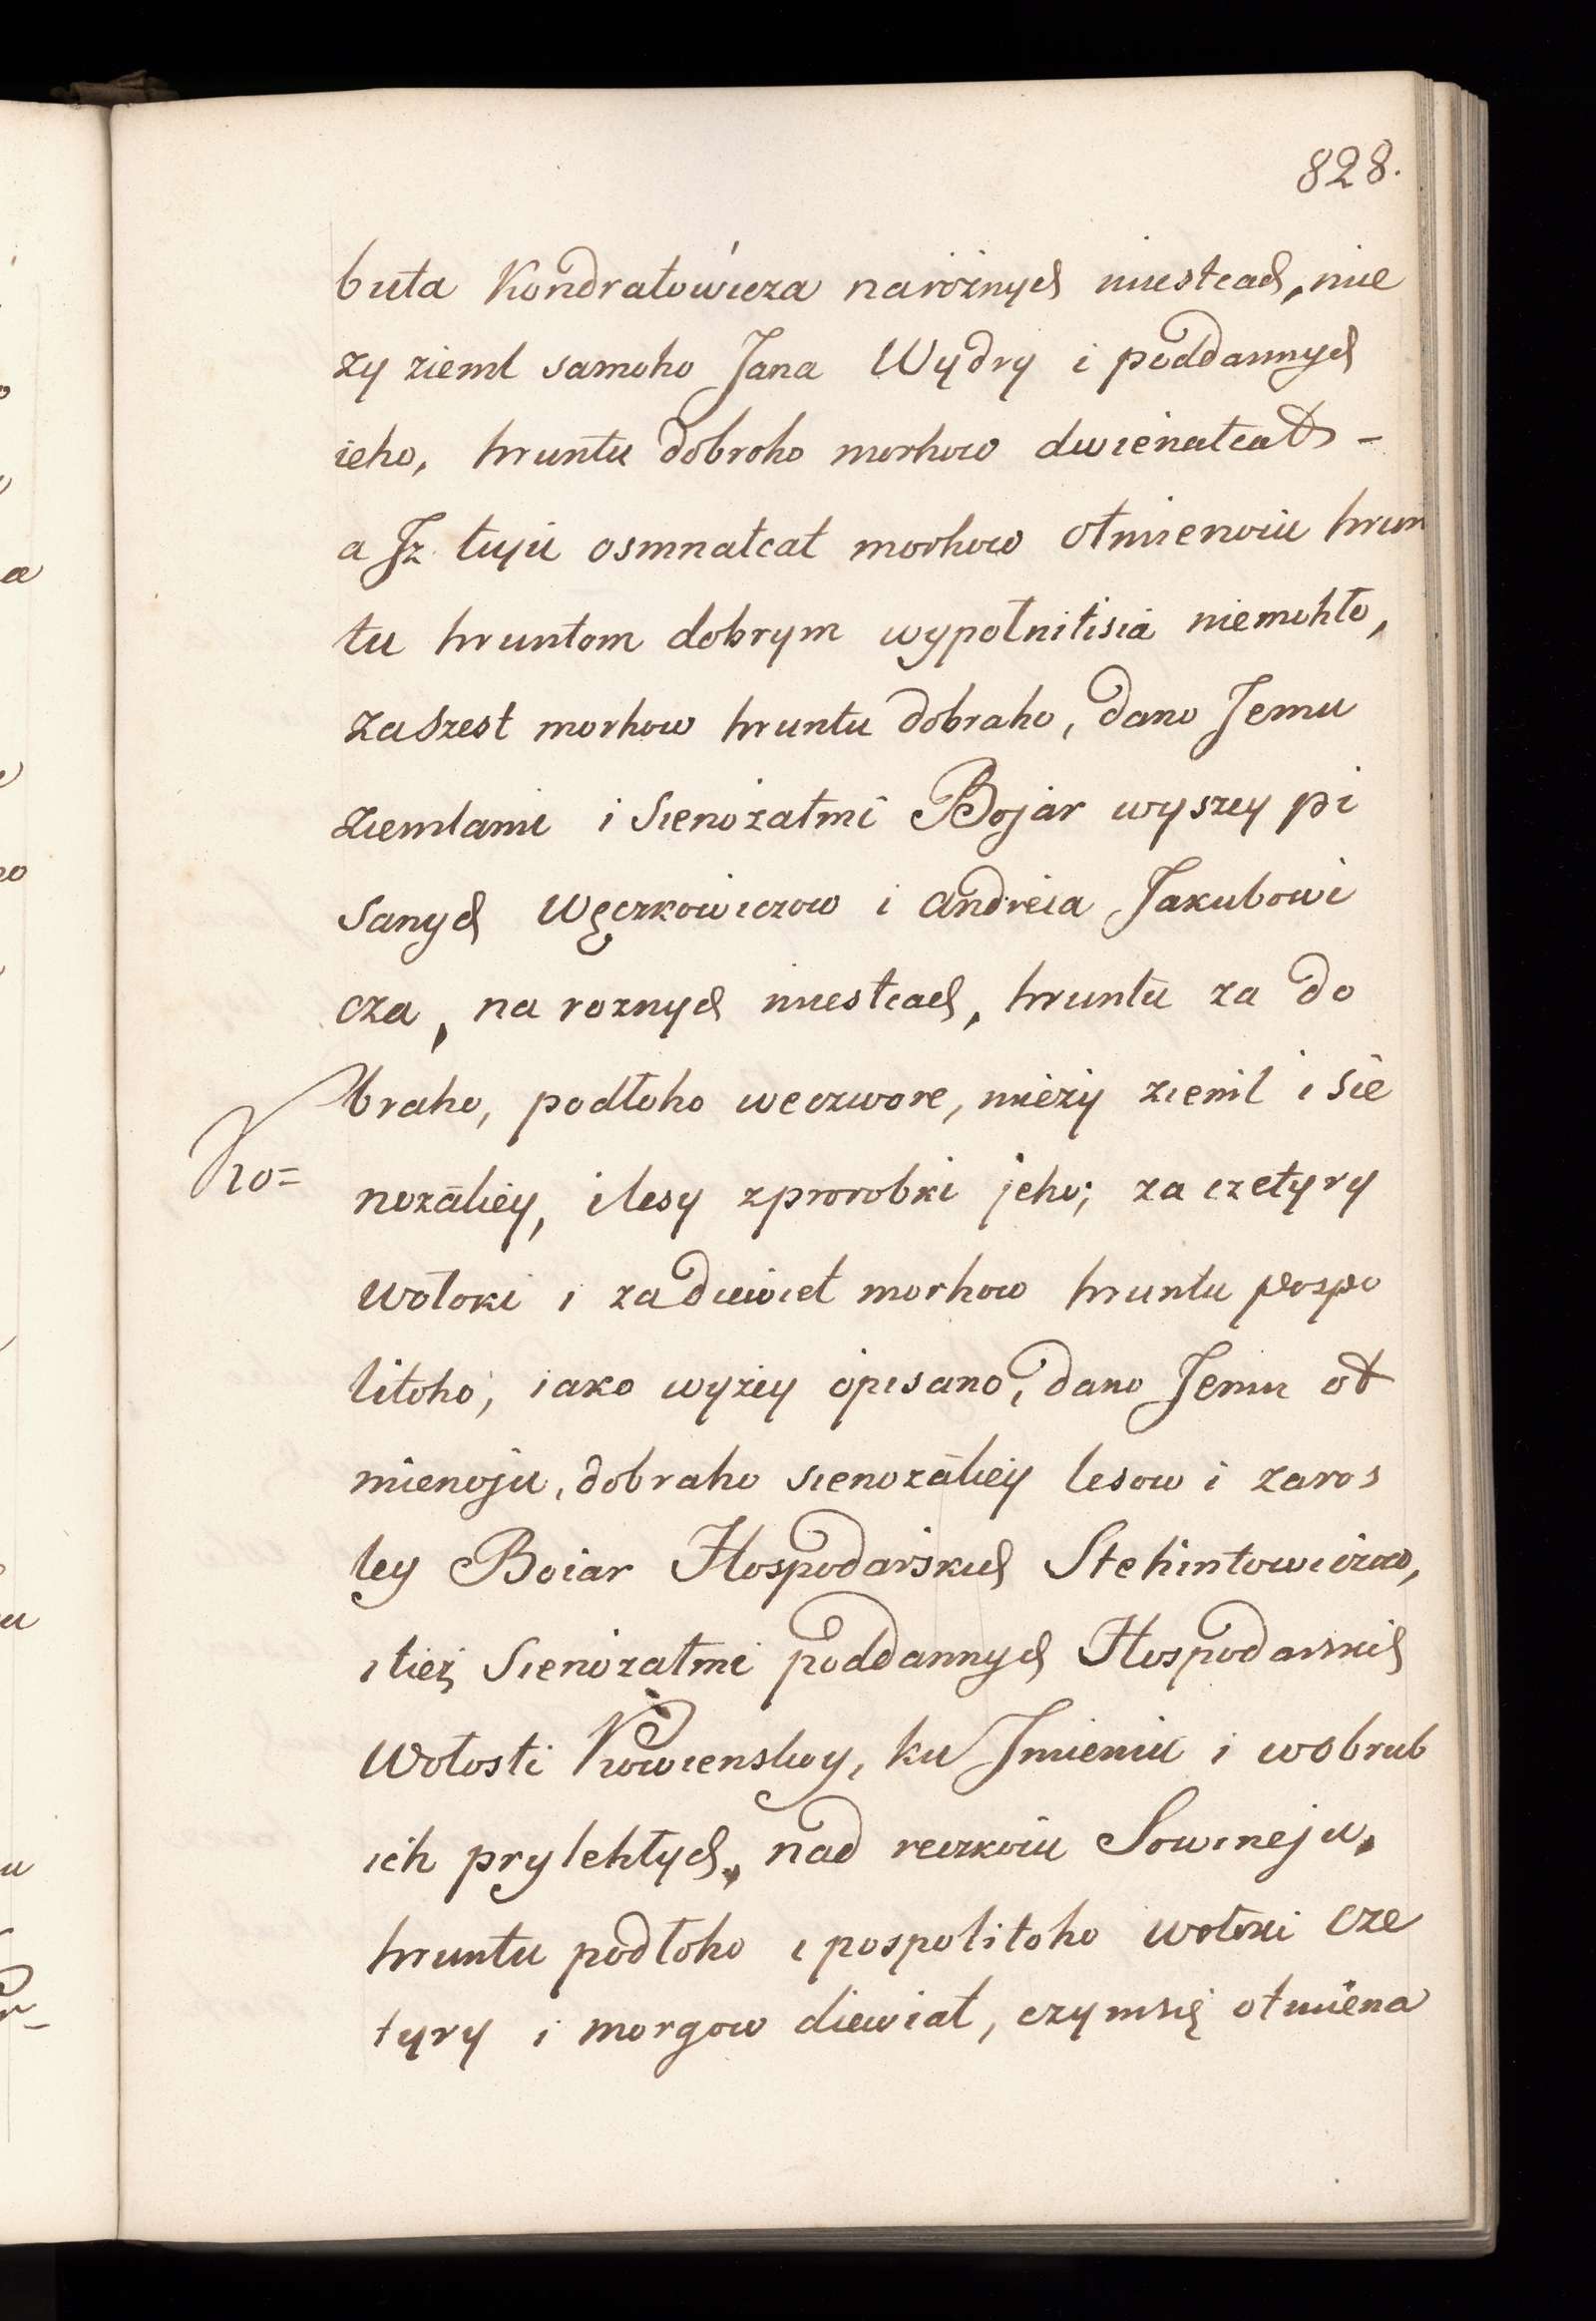 828.
buta Kondratowicza narożnych miestcach, mie
zy zieml samoho Jana Wydry i poddannych
ieho, hruntu dobroho morhow dwienatcat -
a Iz tuiu osmnatcat morhow otmienoiu hrun
tu hruntom dobrym wypołnitisia niemohło,
za szest morhow hruntu dobraho, dano Jemu
ziemlami i Sienożatmi Bojar wyszey pi
sanych Węczkowiczow i Andreia Jakubowi
cza, na roznych miestcach, hruntu za do
braho, podłoho weczwore, mieży zieml i sie
Ko=
nożatiey, i lesy zprorobki jeho; za czetyry
wołoki i za dewiet morhow hruntu pospo
litoho, iako wyżey opisano, dano Jemu ot
mienoju, dobraho sienożatiey lesow i zaros
ley Boiar Hospodarskich Stehintowiczow,
i tież Sienożatmi poddannych Hospodarskich
Wołosti Kowienskoy, ku Imieniu i wobrub
ich prylehłych, nad reczkoiu Sowineju,
hruntu podłoho i pospolitoho wołoki cze
tyry i morgow diewiat, czymsię otmiena